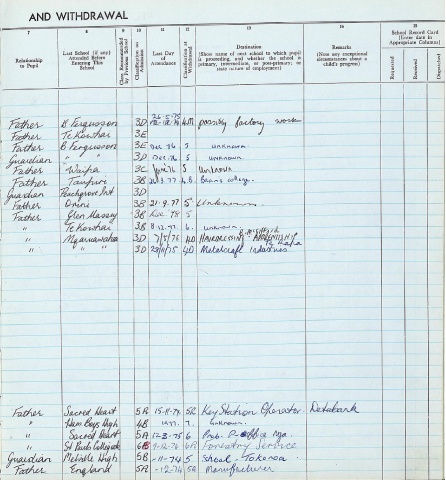 AND WITHDRAWAL
7 8 9 10 11 12 13 14 15
Relationship to Pupil
Last School (if any) Attended Before Entering This School
Class Recommended by Previous School
Classification on Admission
Last Day of Attendance
Classification at Withdrawal
Destination
(Show name of next school to which pupil is proceeding, and whether the school is primary, intermediate, or post-primary, or state nature of employment)
Remarks
(Note any exceptional circumstances about a child's progress)
School Record Card (Enter date in Appropriate Columns)
Requested
Received
Despatched
Father B Fergusson 3D possibly factory work
Father Te Kowhai 3E
Father B Fergusson 3E Dec 76 5 unknown
Guardian " " 3D Dec 76 5 unknown
Father Waipa 3C 5 Unknown
Father Taupiri 3B
Guardian Peachgrove Int 3D
Father 3B 21.9.77 5 Unknown
Father Glen Massey 3B 5
" Te Kowhai 3B 8.12.77 6. unknown
" Ngaruawahia 3D 7/5/76 4D HAIRDRESSING APPRENTISHIP
" " " 3D 28/11/75 4D Metalcraft Industries
Father Sacred Heart 5A 15-11-74 5R Key Station Operator Databank
" Ham Boys High 4B 1977. 7. Unknown
" Sacred Heart 5A 6
" St Pauls Collegiate 6B 6A Forestry Service
Guardian Melville High 5B -11-74 5 School - Tokoroa
Father England 5A -12-74 5A Manufacturer